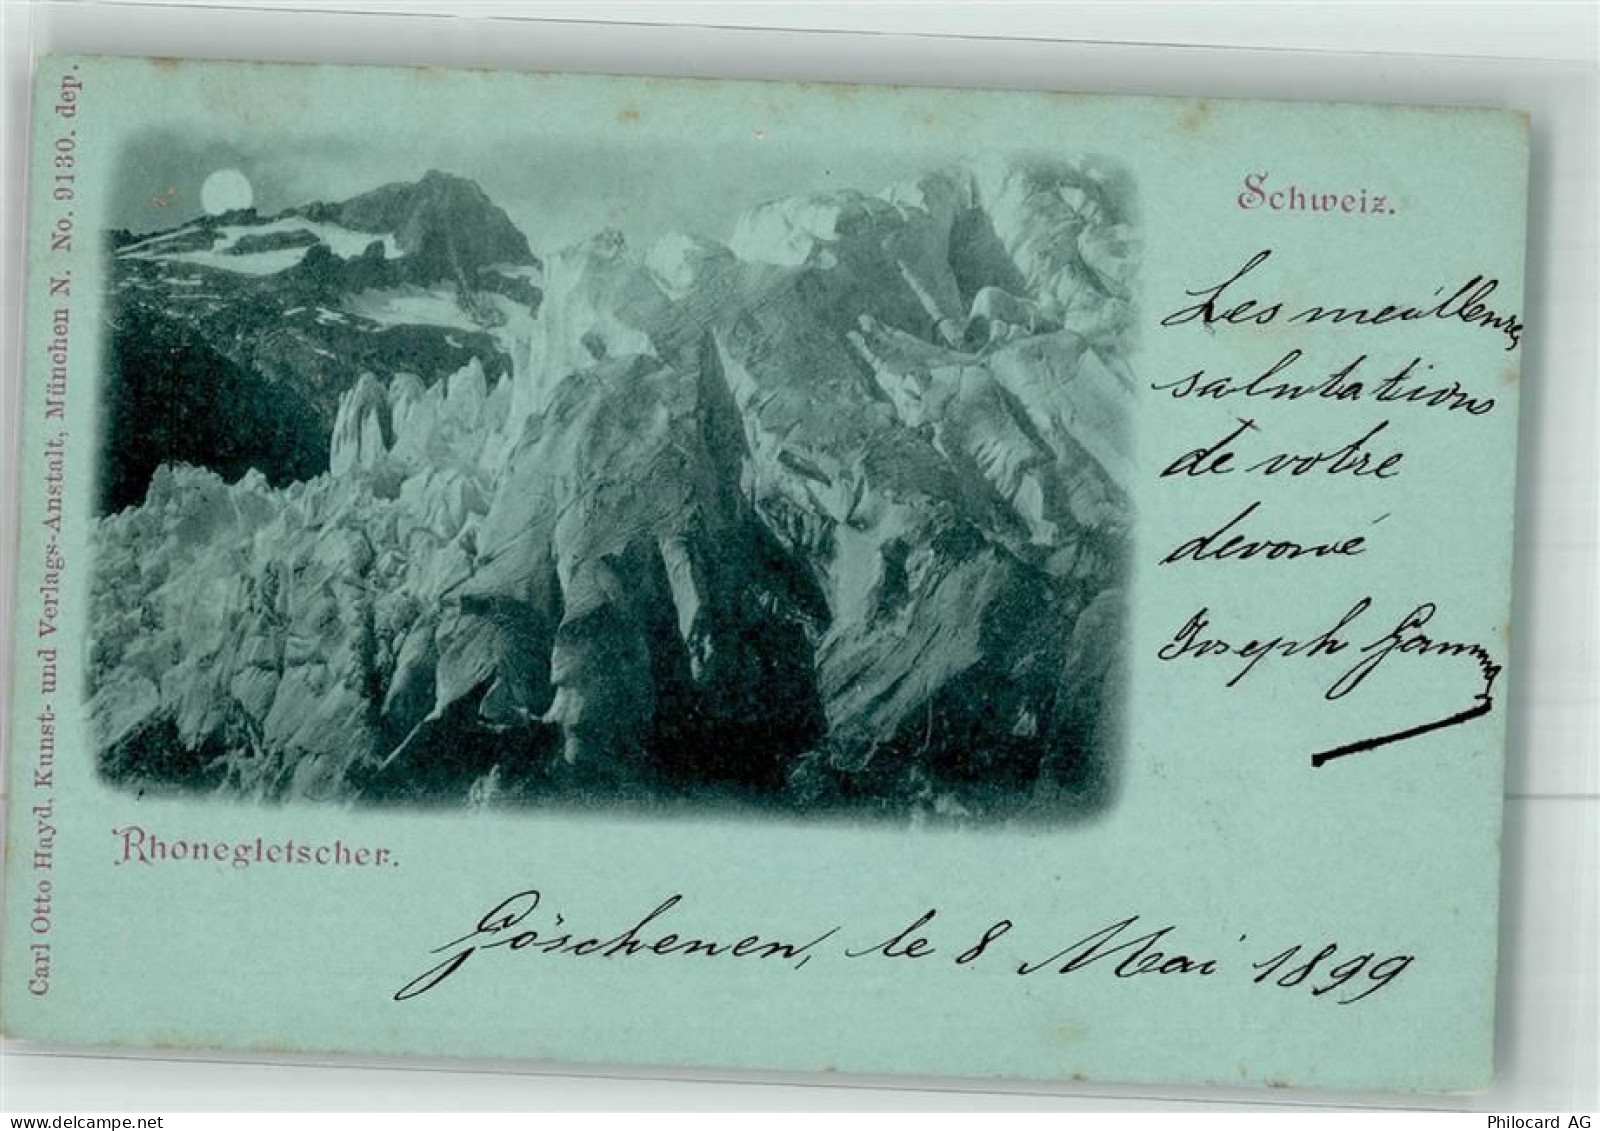 Carl Otto Hayd, Kunst- und Verlags-Anstalt, München N. No. 9130. dep.
Schweiz.
Les meilleures
salutations
de votre
devoué
Joseph
Rhonegletscher.
Göschenen, le 8 Mai 1899
Philocard AG